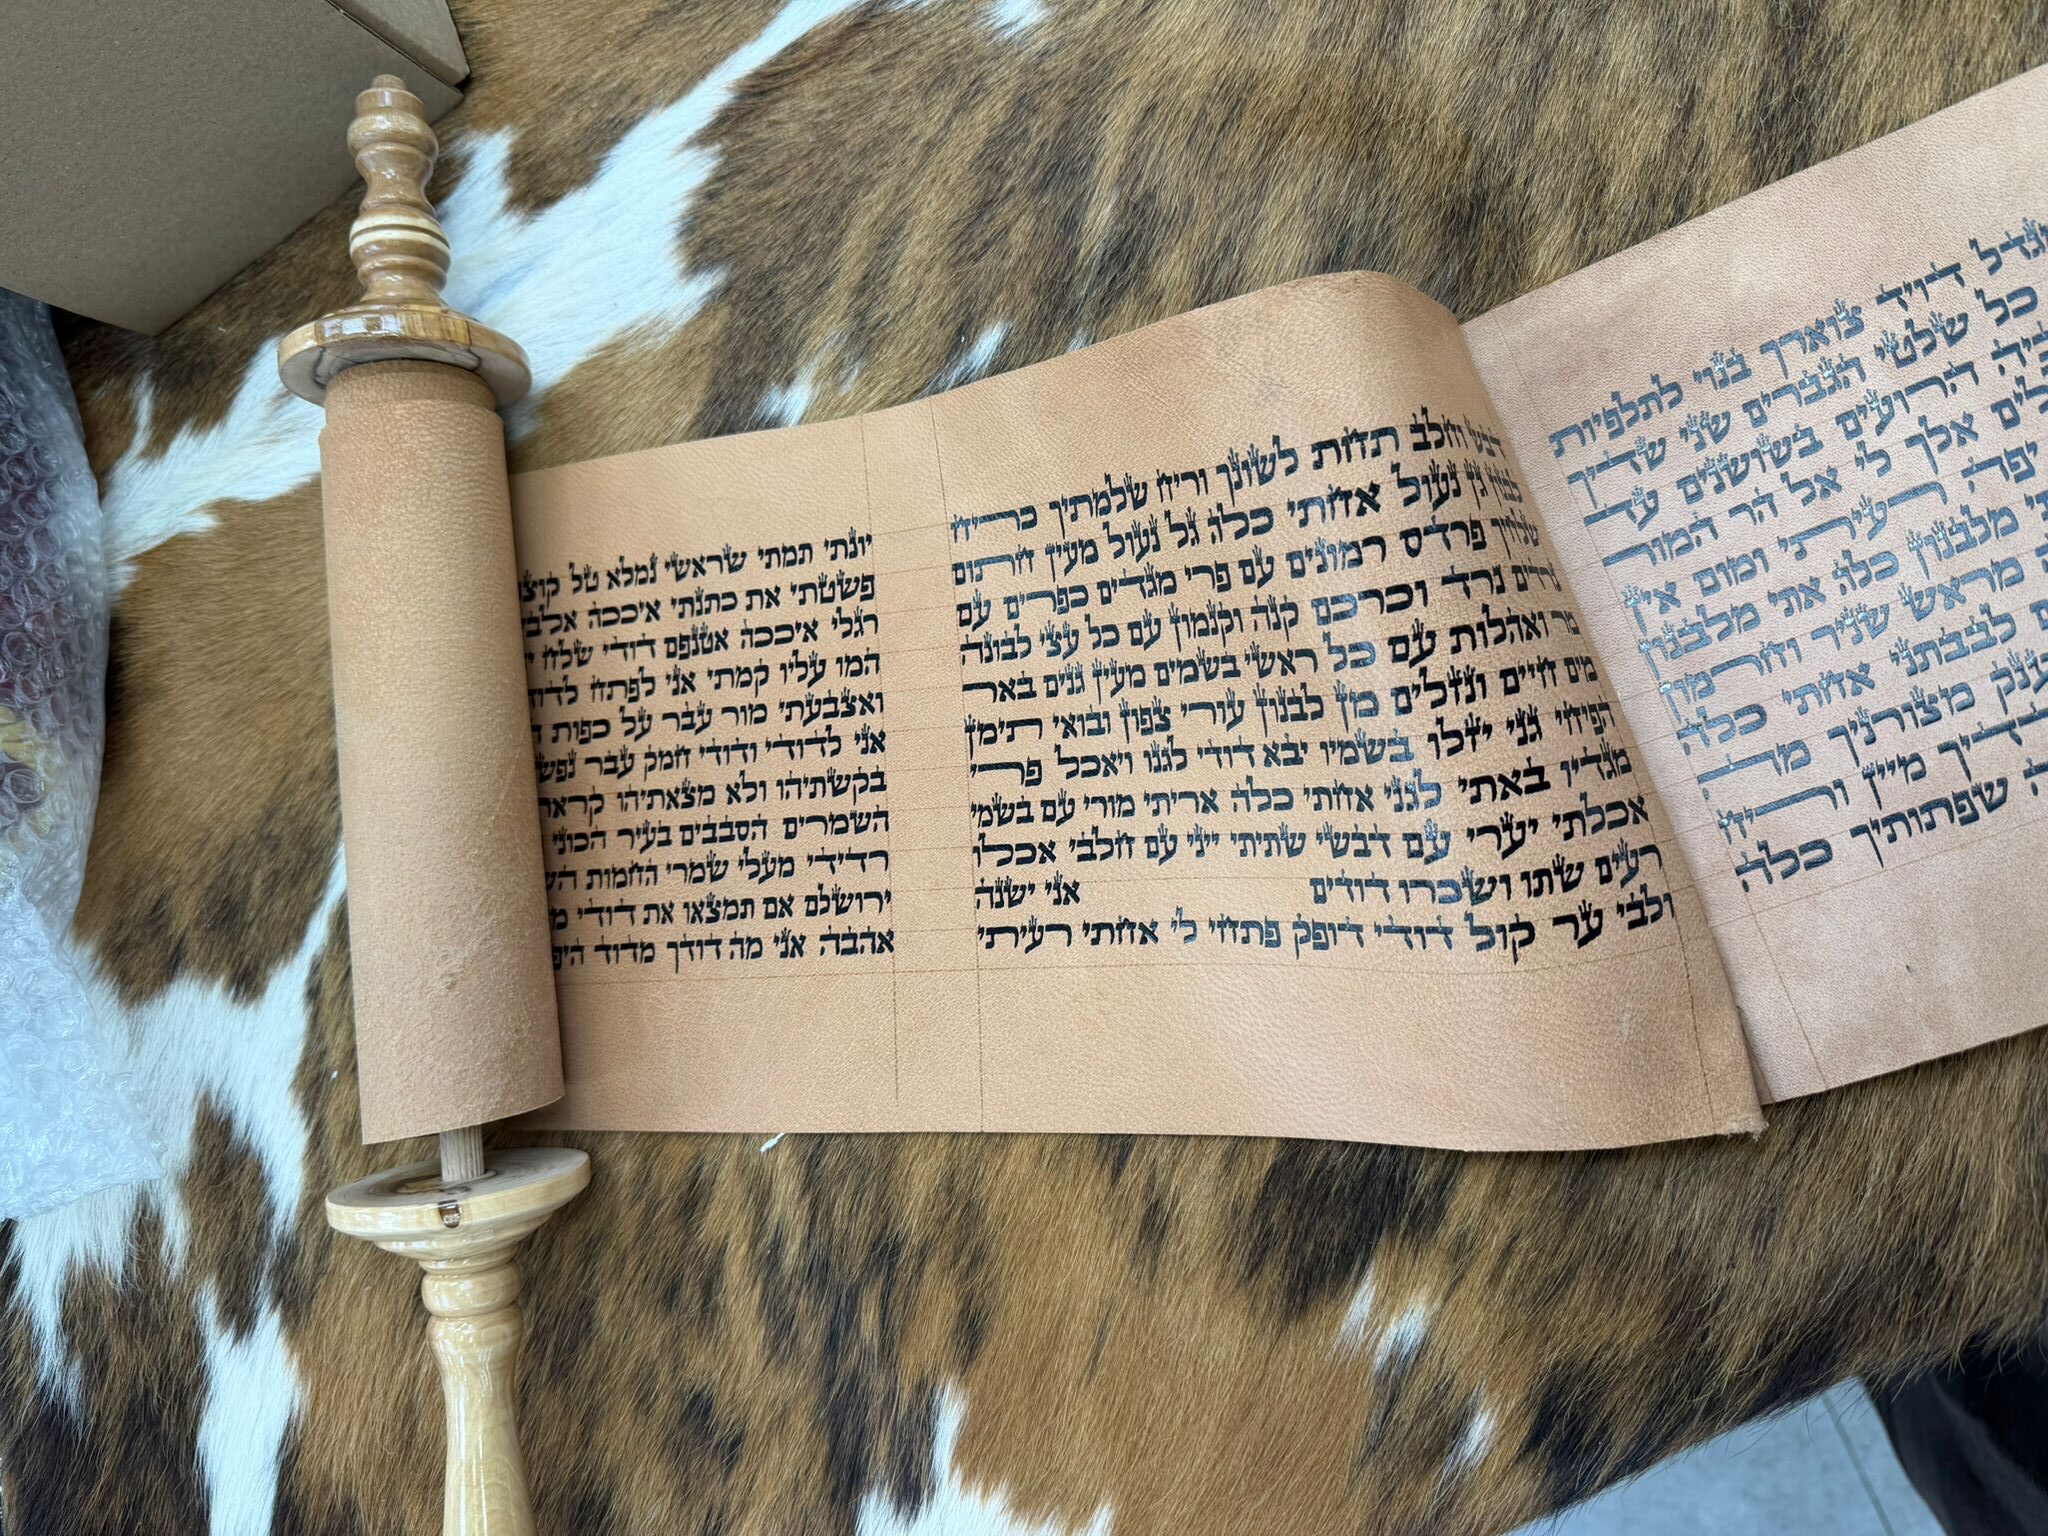 דויד צוארך בנוי לתלפיות
כל שלטי הגברים שני שדיך
הרועים בשושנים עד
אלך לי אל הר המור
יפה רעיתי ומום אין
מלבנון כלה אתי מלבנון
מראש שניר וחרמון
לבבתני אחתי כלה
מצורניך מה
מיין וריח
שפתותיך כלה
דבש וחלב תחת לשונך וריח שלמתיך כריח
לבנון גן נעול אחתי כלה גל נעול מעין חתום
שלחיך פרדס רמונים עם פרי מגדים כפרים עם
נרדים נרד וכרכם קנה וקנמון עם כל עצי לבונה
מר ואהלות עם כל ראשי בשמים מעין גנים באר
מים חיים ונזלים מן לבנון עורי צפון ובואי תימן
הפיחי גני יזלו בשמיו יבא דודי לגנו ויאכל פרי
מגדיו באתי לגני אחתי כלה אריתי מורי עם בשמי
אכלתי יערי עם דבשי שתיתי ייני עם חלבי אכלו
רעים שתו ושכרו דודים אני ישנה
ולבי ער קול דודי דופק פתחי לי אחתי רעיתי
יונתי תמתי שראשי נמלא טל
פשטתי את כתנתי איככה
רגלי איככה אטנפם דודי שלח
המו עליו קמתי אני לפתח
ואצבעתי מור עבר על כפות
אני לדודי ודודי חמק עבר
בקשתיהו ולא מצאתיהו
השמרים הסבבים בעיר
רדידי מעלי שמרי החמות
ירושלם אם תמצאו את דודי
אהבה אני מה דודך מדוד